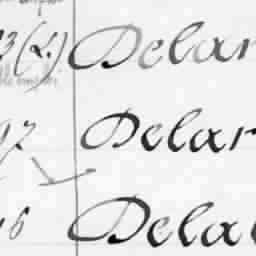 3(L.) Delar
97 Delar
16 Dela